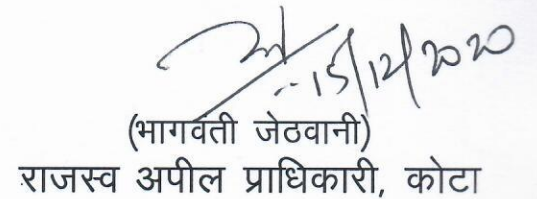 15/12/2020
(भागवंती जेठवानी)
राजस्व अपील प्राधिकारी, कोटा